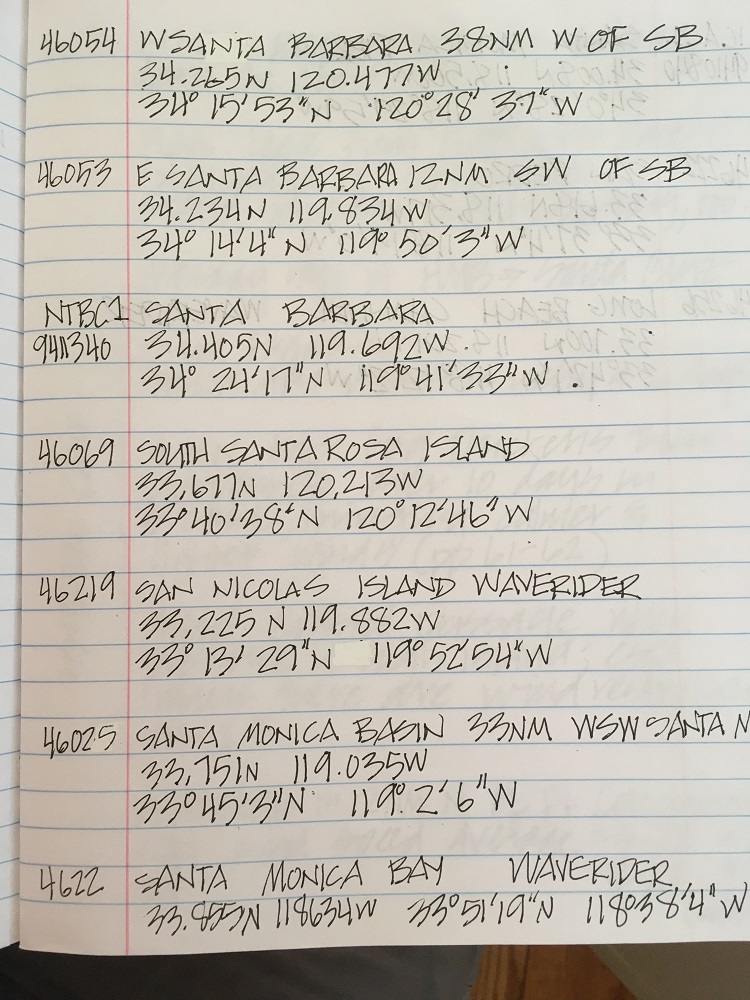 46054 W SANTA BARBARA 38NM W OF SB.
34.265N 120.477W
34° 15' 53" N 120° 28' 37" W
46053 E SANTA BARBARA 12NM SW OF SB
34.234N 119.834W
34° 14' 4" N 119° 50' 3" W
NTBC1 SANTA BARBARA
9411340 34.405N 119.692W.
34° 24' 17" N 119° 41' 33" W.
46069 SOUTH SANTA ROSA ISLAND
33,677N 120,213W
33° 40' 38" N 120° 12' 46" W
46219 SAN NICOLAS ISLAND WAVERIDER
33,225 N 119.882W
33° 13' 29" N 119° 52' 54" W
46025 SANTA MONICA BASIN 33NM WSW SANTA M
33,751N 119.035W
33° 45' 3" N 119° 2' 6" W
4622 SANTA MONICA BAY WAVERIDER
33.855N 118634W 33° 51' 19" N 118° 38' 4" W